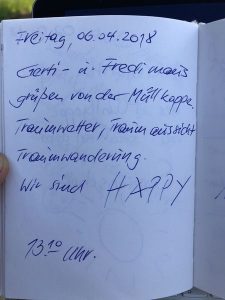 Freitag, 06.04.2018
Gerti- u. Fredimaus
grüßen von der Müllkoppe.
Traumwetter, Traumaussicht
Traumwanderung.
Wir sind HAPPY
13.10 Uhr.